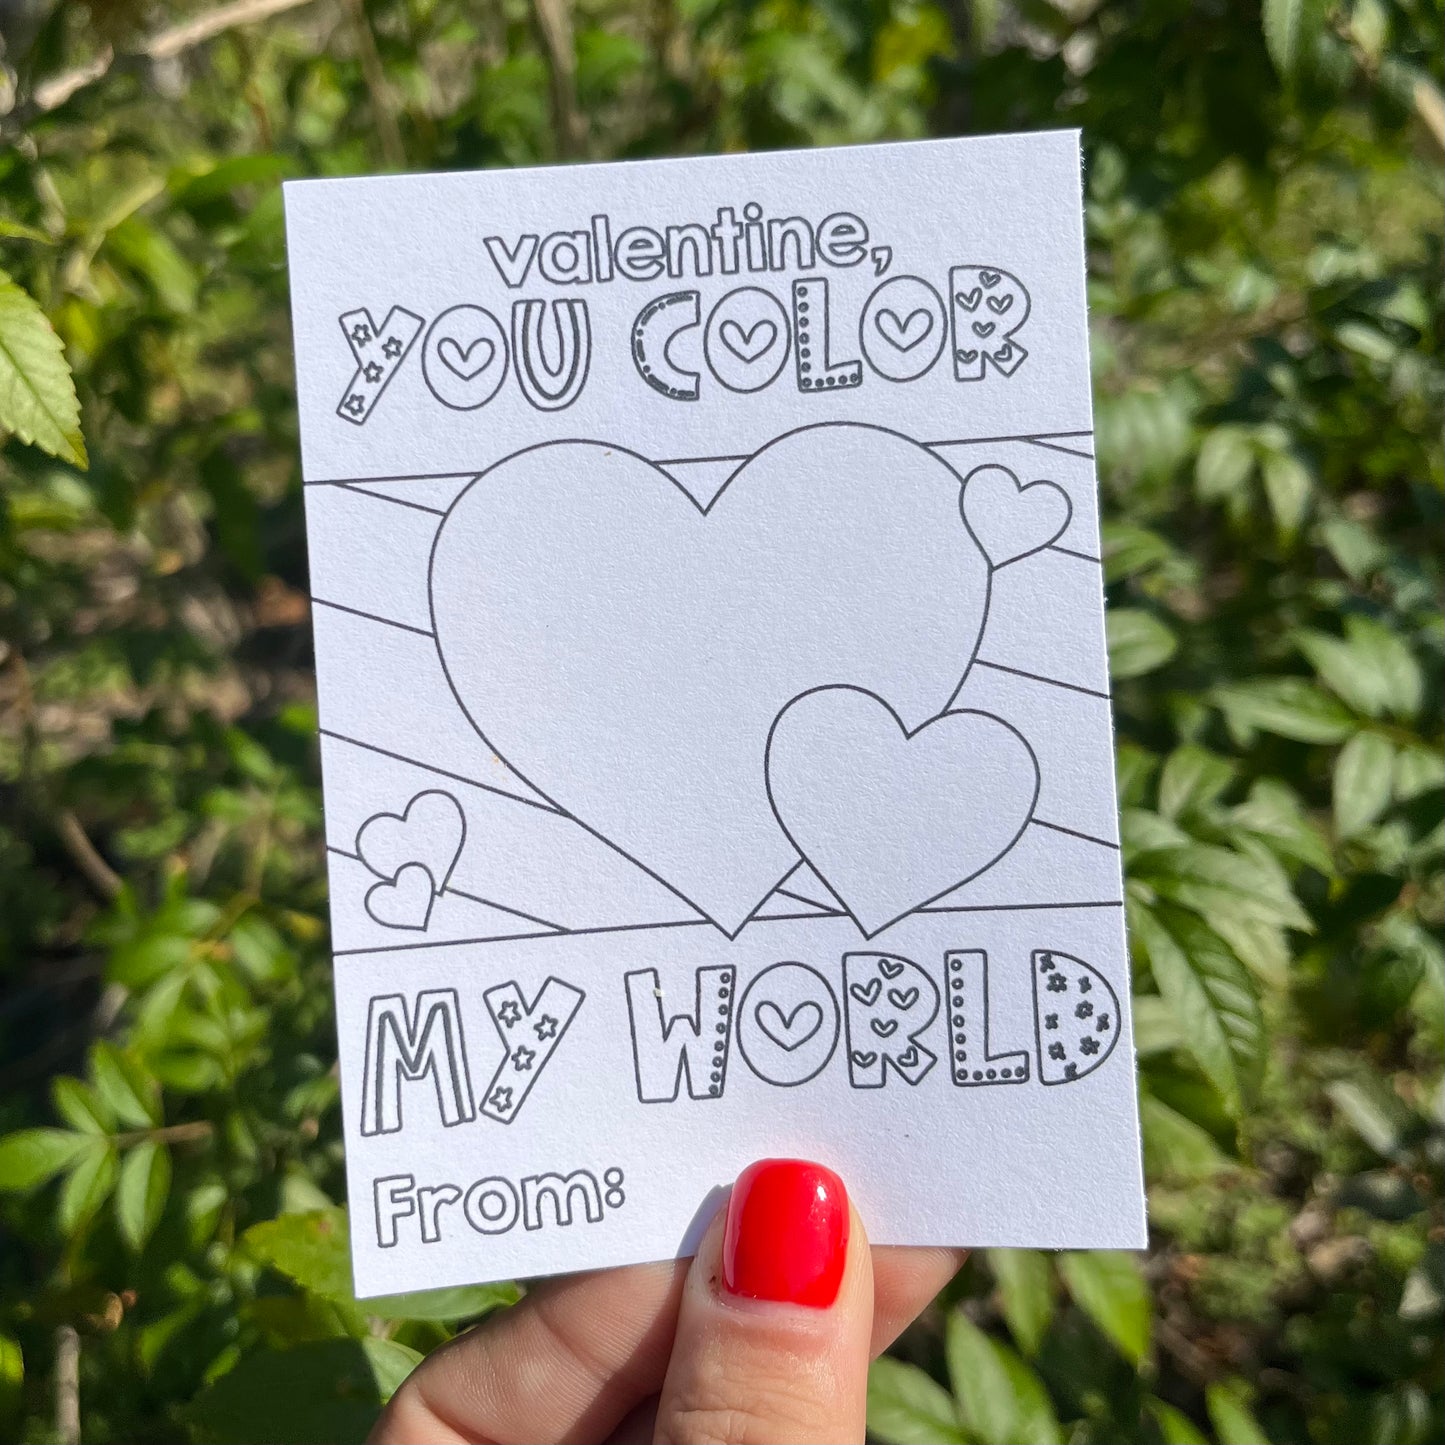 valentine,
YOU COLOR
MY WORLD
From: